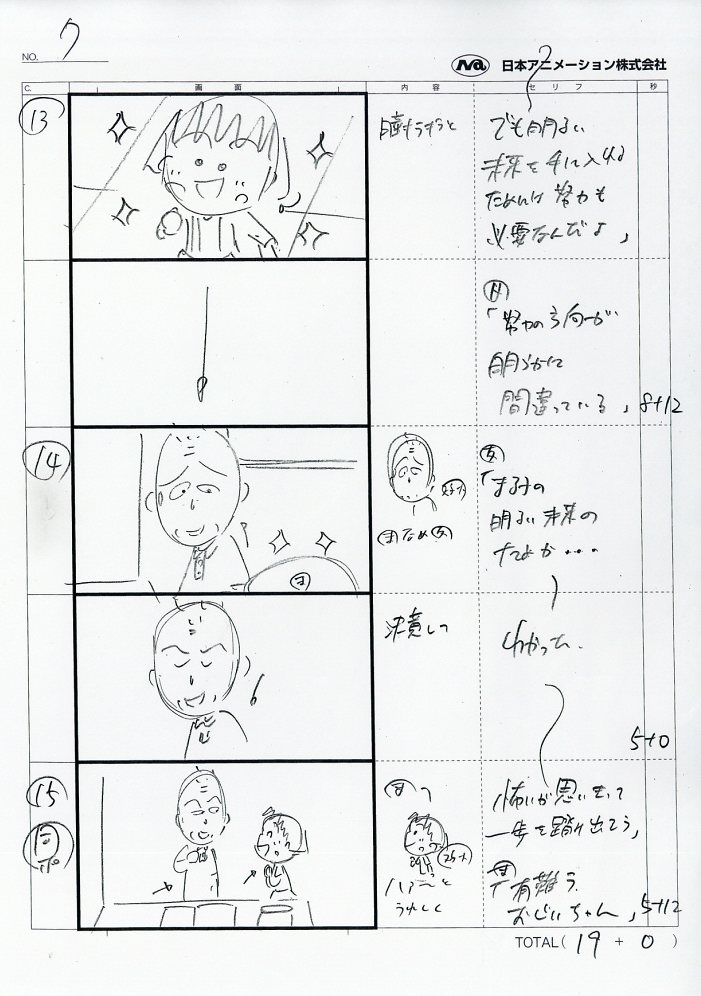 NO. 7
Na 日本アニメーション株式会社
C. 画面 内容 セリフ 秒
13
瞳キラキラと
でも明るい
未来を手に入れる
ためには努力も
必要なんだよ」
「努力の方向が
明らかに
間違っている」
8+12
14
友
「まる子の
明るい未来の
ためか...
決意して
わかった。
5+0
15
同ポ
怖いが思いきって
一歩を踏み出そう」
ま
ハァーと
うれしく
ま
「有難う
おじいちゃん」
5+12
TOTAL( 19 + 0 )